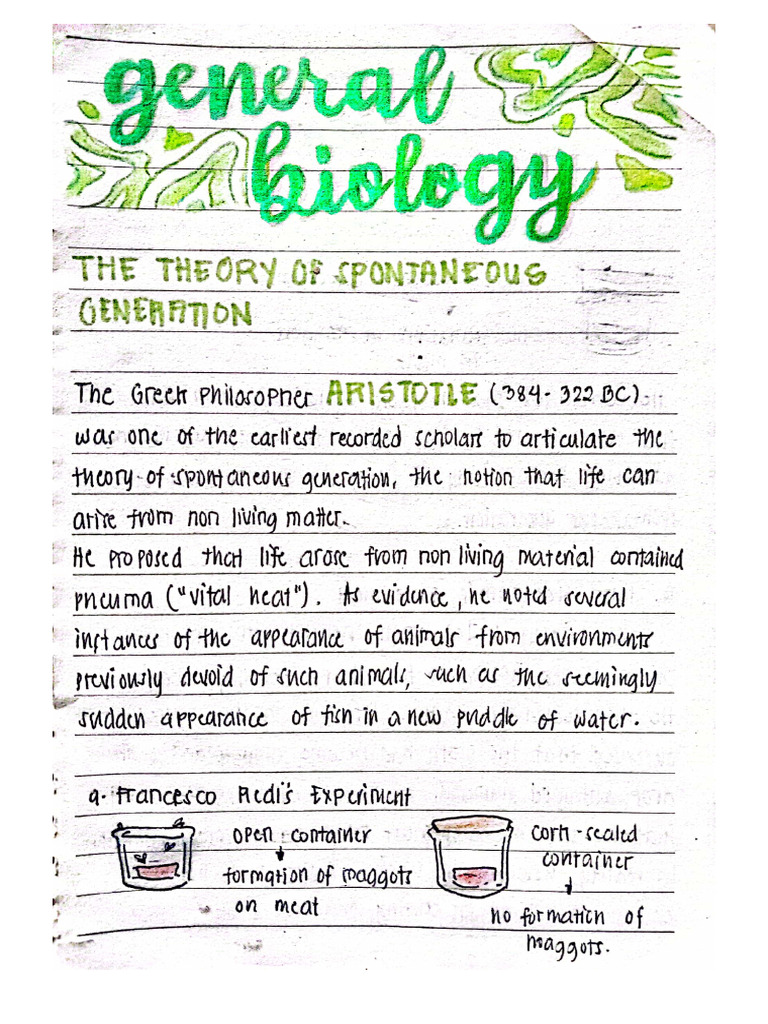 general
biology
THE THEORY OF SPONTANEOUS
GENERATION
The Greek Philosopher ARISTOTLE (384-322 BC)
was one of the earliest recorded scholars to articulate the
theory of spontaneous generation, the notion that life can
arise from non living matter.
He proposed that life arose from non living material contained
pneuma ("vital heat"). As evidence, he noted several
instances of the appearance of animals from environments
previously devoid of such animals, such as the seemingly
sudden appearance of fish in a new puddle of water.
a. Francesco Redi's Experiment
open container
formation of maggots
on meat
cork-sealed
container
no formation of
maggots.